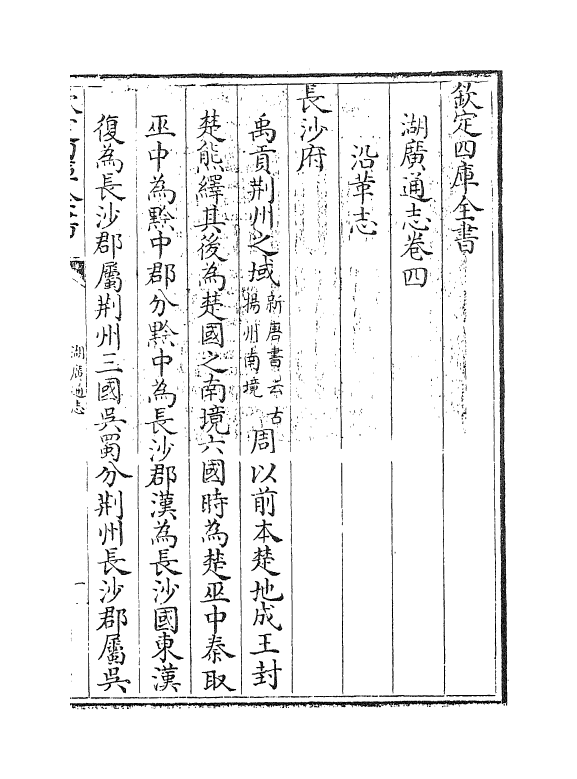 欽定四庫全書
湖廣通志卷四
沿革志
長沙府
禹貢荆州之域新唐書云古揚州南境周以前本楚地成王封
楚熊繹其後為楚國之南境六國時為楚巫中秦取
巫中為黔中郡分黔中為長沙郡漢為長沙國東漢
復為長沙郡屬荆州三國吳蜀分荆州長沙郡屬吳
湖廣通志
一